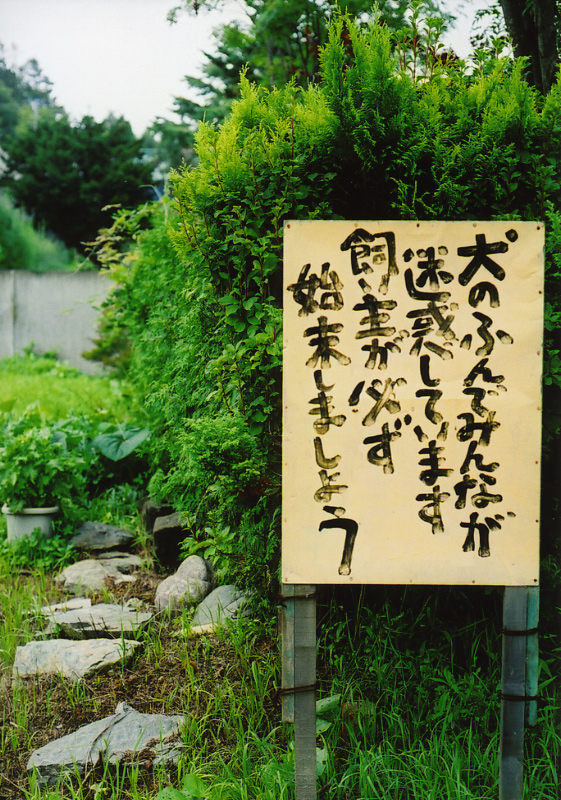 犬のふんでみんなが
迷惑しています
飼い主が必ず
始末しましょう